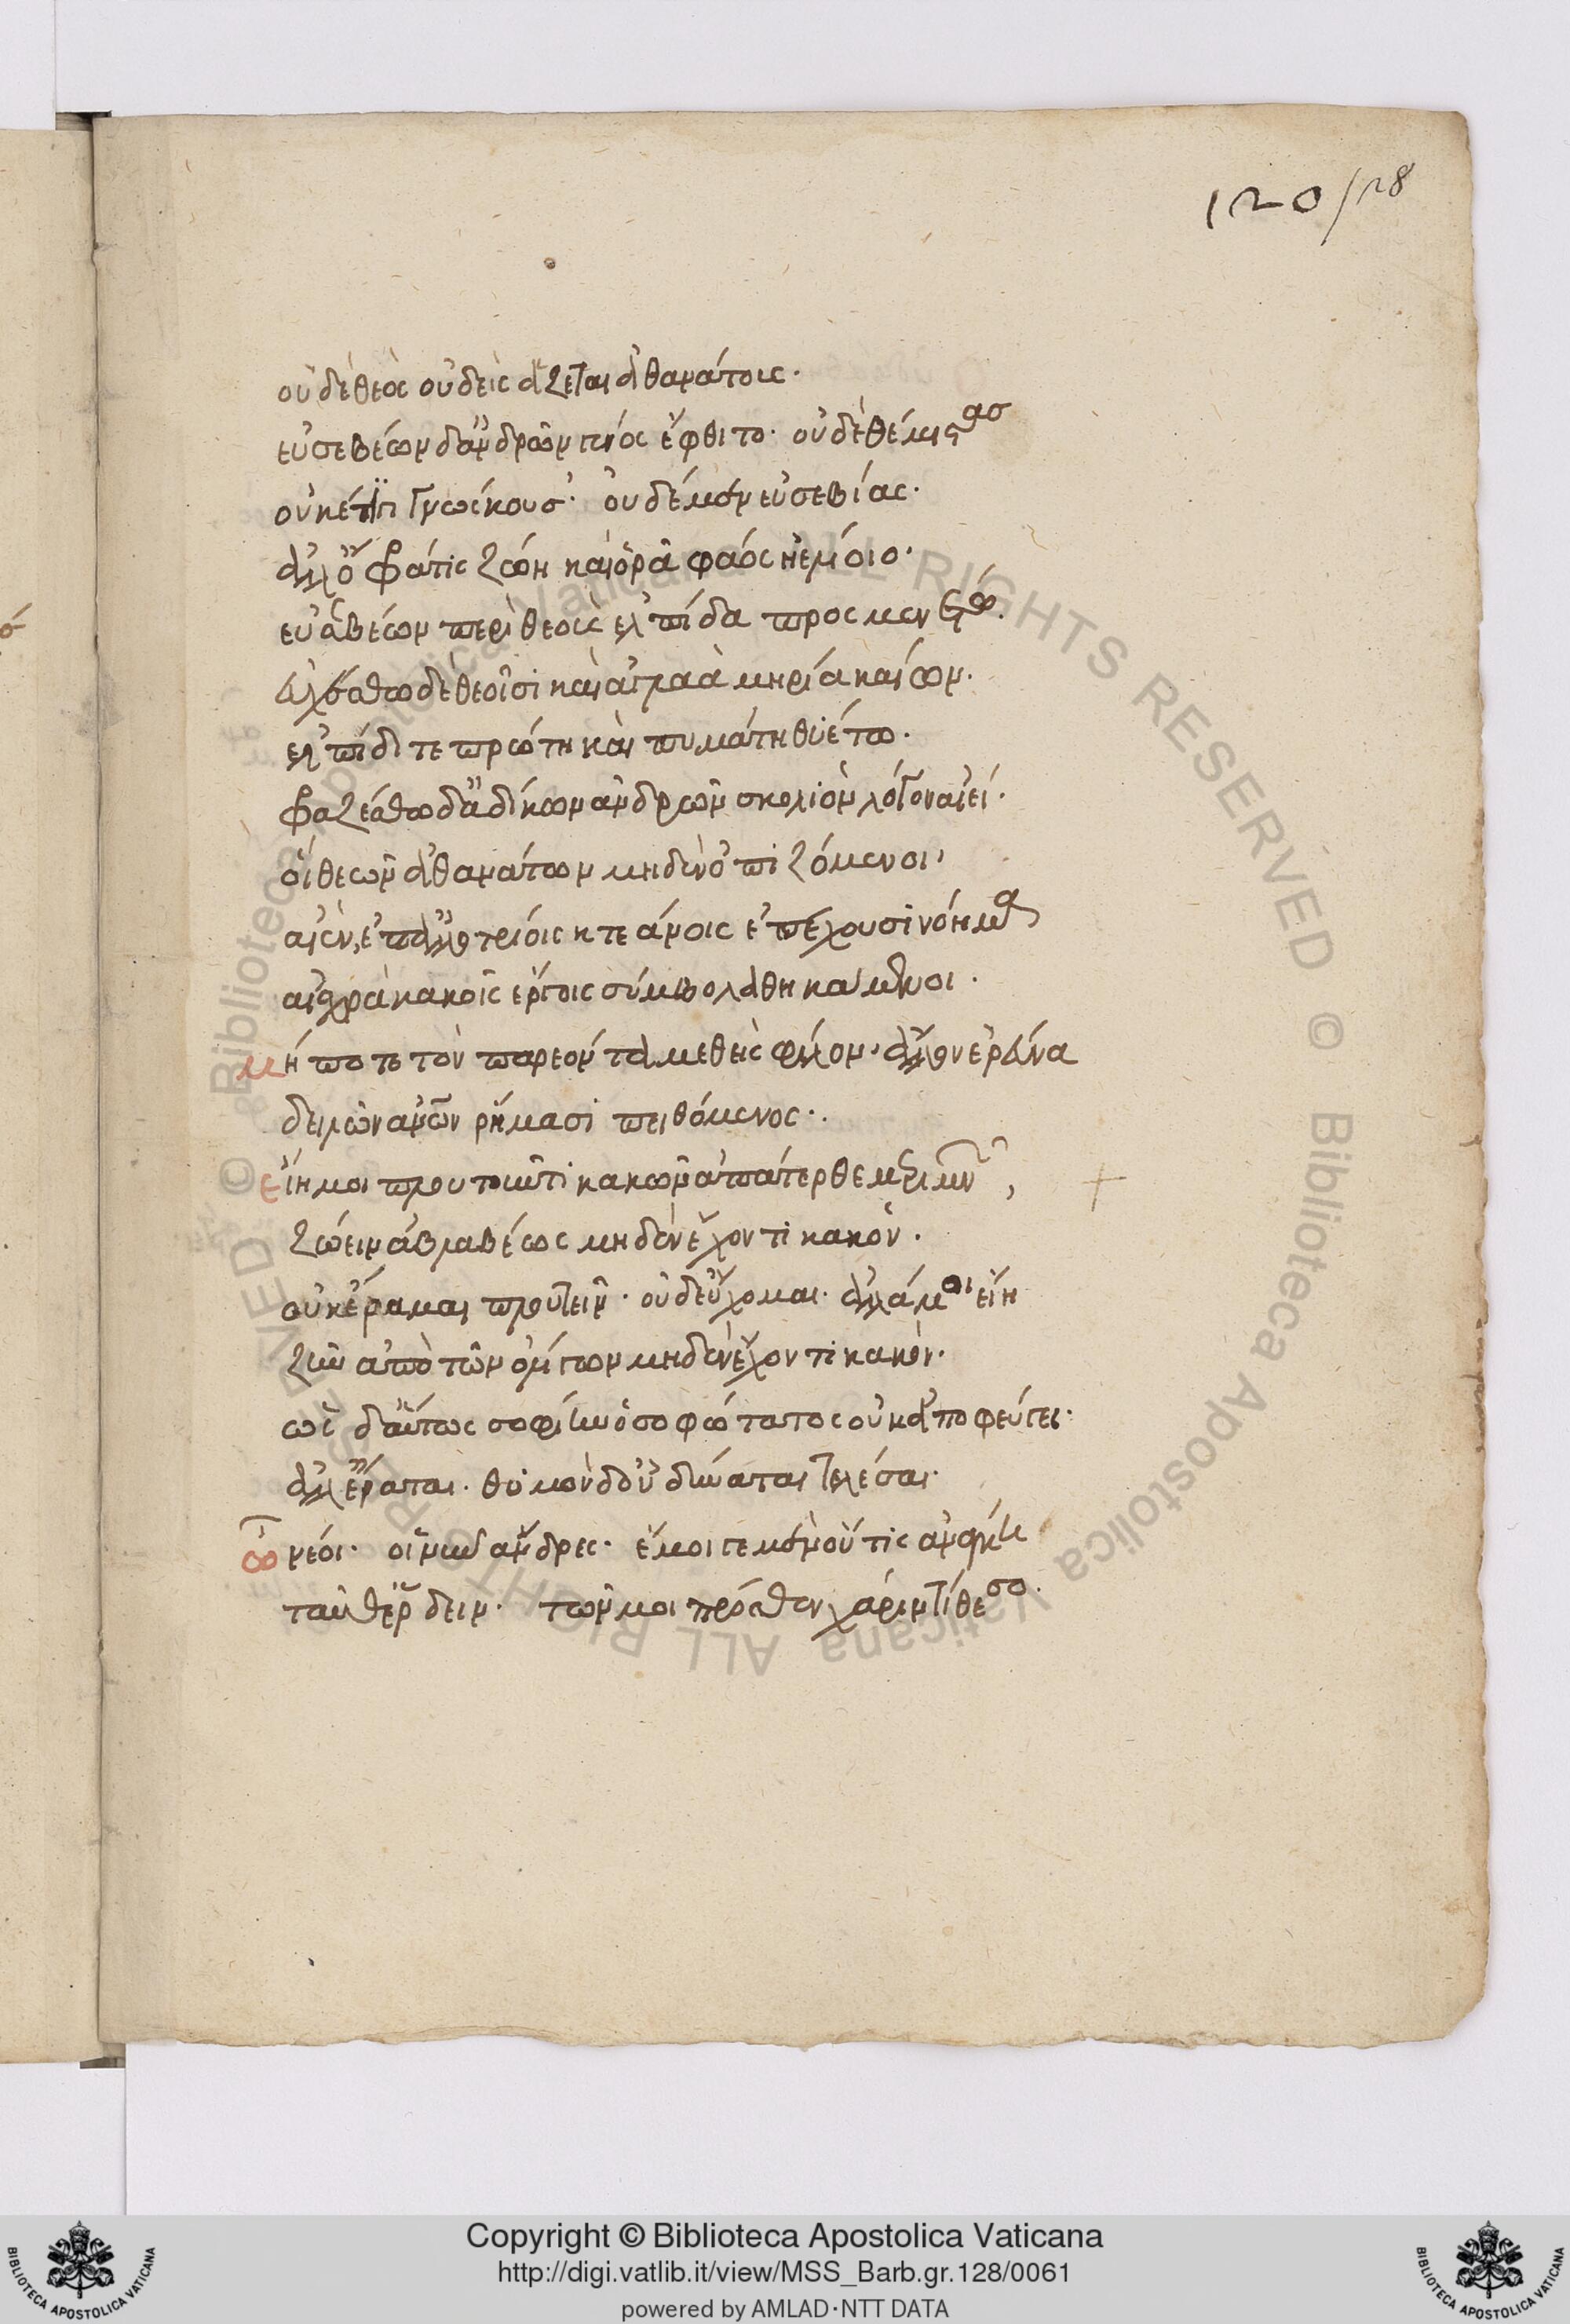 120/128
οὐδὲ θεὸς οὐδεὶς ἅζεται ἀθανάτοις·
εὐσεβέων δ' ἀνδρῶν γένος ἔφθιτο· οὐδὲ θέμιστας
οὐκέτι γινώσκουσ'· οὐδὲ μὰν εὐσεβίας·
ἀλλ' ὄφρά τις ζώη καὶ ὁρᾶ φάος ἠελίοιο·
εὐσεβέων περὶ θεοὺς ἐλπίδα προσμενέτω·
εὐχέσθω δὲ θεοῖσι καὶ ἀγλαὰ μηρία καίων·
ἐλπίδι τε πρώτη καὶ πυμάτη θυέτω·
φραζέσθω δ' ἀδίκων ἀνδρῶν σκολιὸν λόγον αἰεί·
οἳ θεῶν ἀθανάτων μηδὲν ὀπιζόμενοι,
αἰὲν, ἐπ' ἀλλοτρίοις κτεάνοις ἐπέχουσι νόημα
αἰσχρὰ κακοῖς ἔργοις σύμβολα θηκάμενοι·
μήποτε τὸν παρεόντα μεθεὶς φίλον, ἄλλον ἐρεύνα
δειλῶν ἀνθρώπων ῥήμασι πειθόμενος·
εἴη μοι πλουτοῦντι κακῶν ἀπάτερθε μεριμνῶν,
ζώειν ἀβλαβέως μηδὲν ἔχοντι κακόν·
οὐκ ἔραμαι πλουτεῖν· οὐδ' εὔχομαι· ἀλλά μοι εἴη
ζῆν ἀπὸ τῶν ὀλίγων μηδὲν ἔχοντι κακόν·
ὡς δ' αὔτως σοφίην ὁ σοφώτατος οὐκ ἀποφεύγει·
ἀλλ' ἔραται· θυμὸν δ' οὐ δύναται τελέσαι·
ὦ νέοι· οἱ νῦν ἄνδρες· ἔμοι γε μὲν οὔ τις ἀμφὶ
ταῦθ' ἔρδειν· τῶν μοι πρόσθεν χάριν τίθεσο·
Copyright © Biblioteca Apostolica Vaticana
http://digi.vatlib.it/view/MSS_Barb.gr.128/0061
powered by AMLAD·NTT DATA